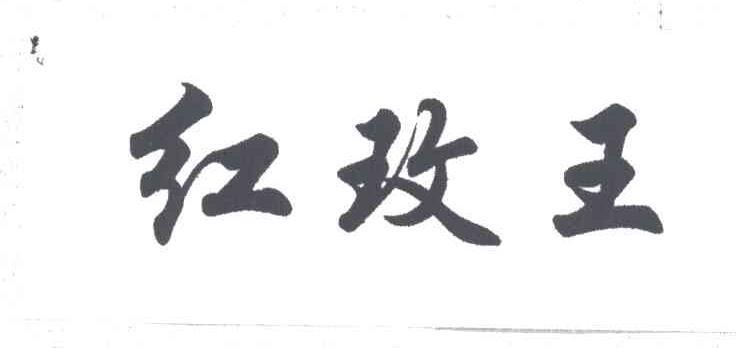 红玫王